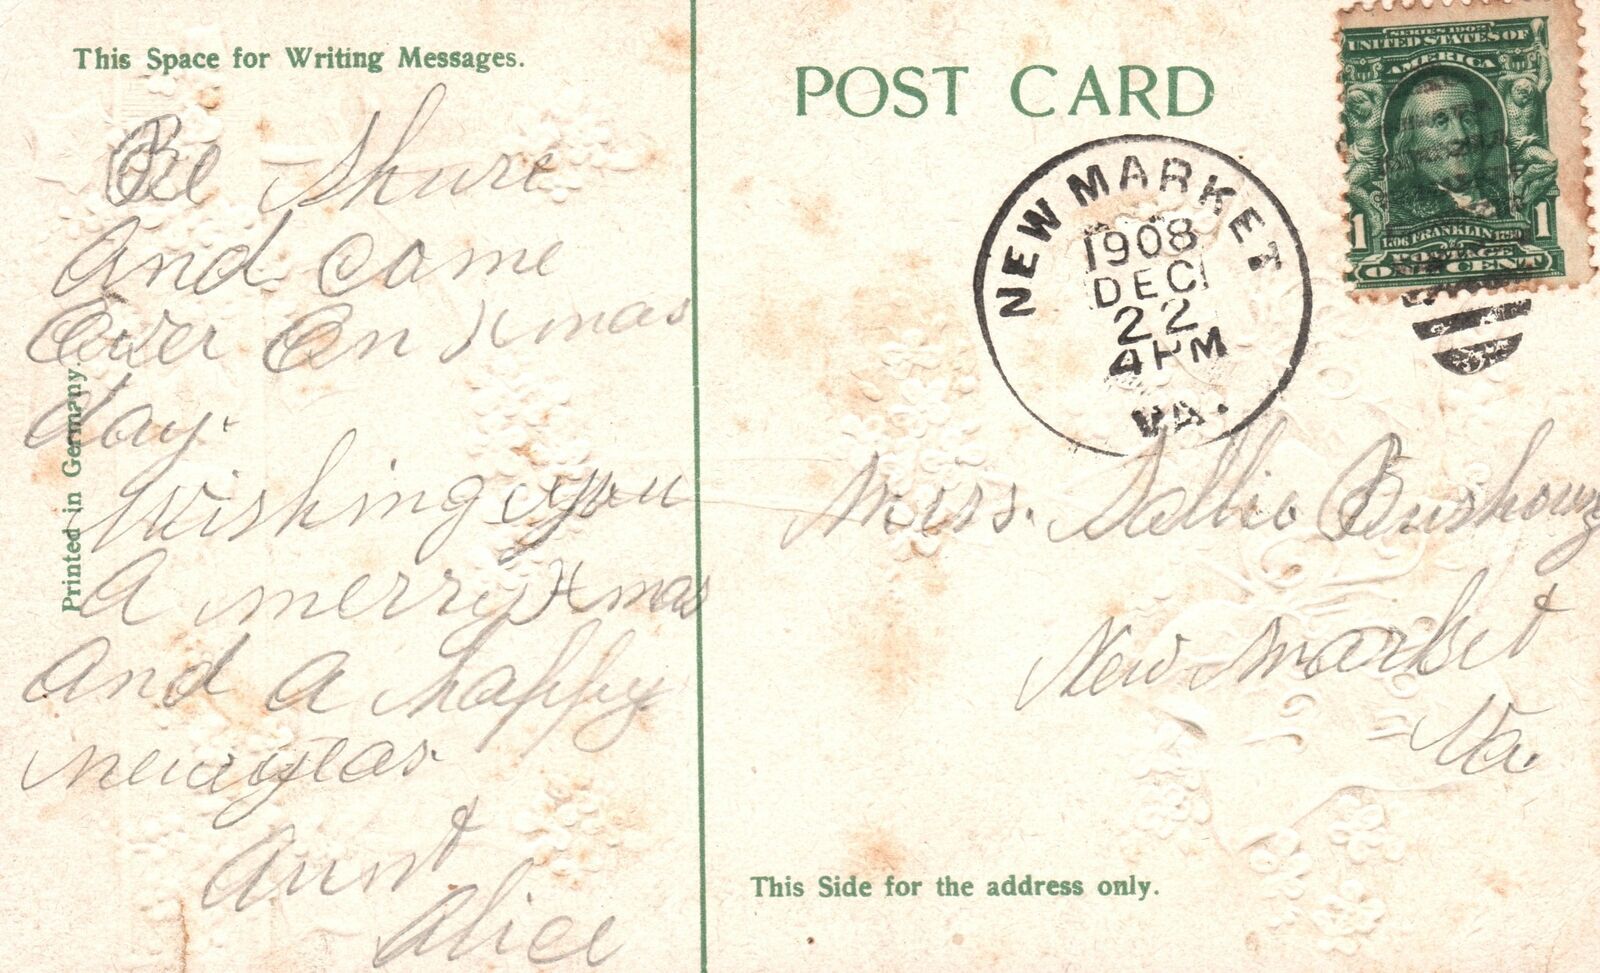 This Space for Writing Messages.
Be Shure
And come
Over On Xmas
day.
Wishing you
A merry Xmas
And a happy
newyear.
Aunt
Alice
Printed in Germany
POST CARD
SERIES 1902
UNITED STATES OF
AMERICA
1 1
1706 FRANKLIN 1790
POSTAGE
ONE CENT
NEW MARKET
1908
DEC
22
4 PM
VA.
Miss. Sallie Bushong
New Market
Va.
This Side for the address only.